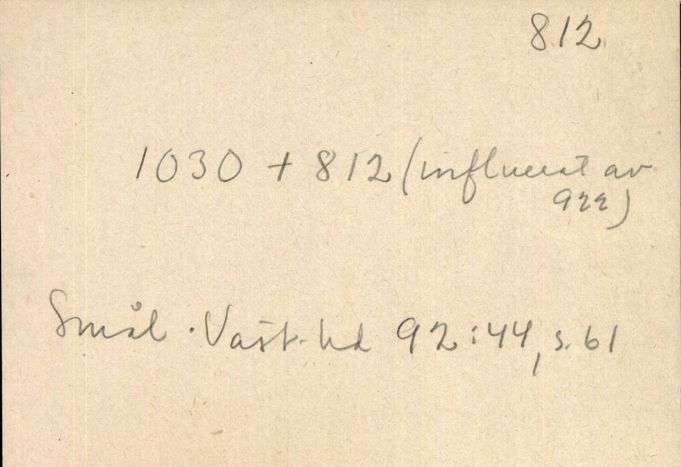 812
1030 + 812 (influerat av
922)
Smål. Väst-hd 92:44, s. 61